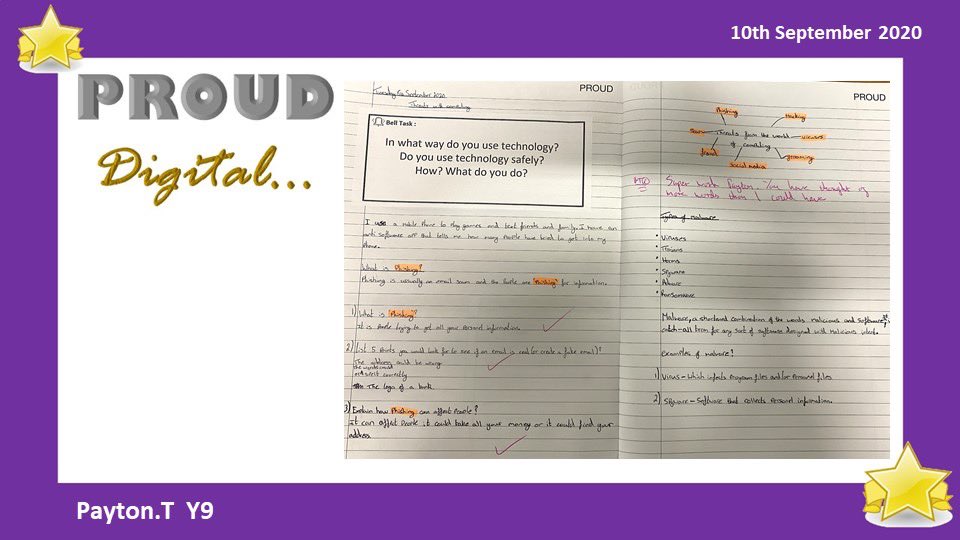 10th September 2020
PROUD
Digital...
PROUD
Tuesday September 2020
Threats with computing
Bell Task :
In what way do you use technology?
Do you use technology safely?
How? What do you do?
I use a mobile Phone to Play games and text friends and family. I have an
anti software app that tells me how many People have tried to get into my
Phone.
What is Phishing?
Phishing is usually an email scam and the People are Phishing for information.
1) What is Phishing?
It is People trying to get all your Personal information.
2) List 5 Points you would look for to see if an email is real (or create a fake email)?
The address could be wrong
the words could
not spelt correctly
The logo of a bank.
3) Explain how Phishing can affect People?
It can affect People it could take all your money or it could find your
address.
PROUD
Phishing
Hacking
Scam
Threats from the world
of computing
viruses
fraud
social media
grooming
Super work Payton. You have thought of
more words than I could have
Types of malware
• Viruses
• Trojans
• Worms
• Spyware
• Adware
• Ransomware
Malware, a shortened combination of the words malicious and software,
catch-all term for any sort of software designed with malicious intent.
examples of malware!
1) Virus - Which infects Program files and/or Personal files
2) Spyware - Software that collects Personal information.
Payton.T Y9